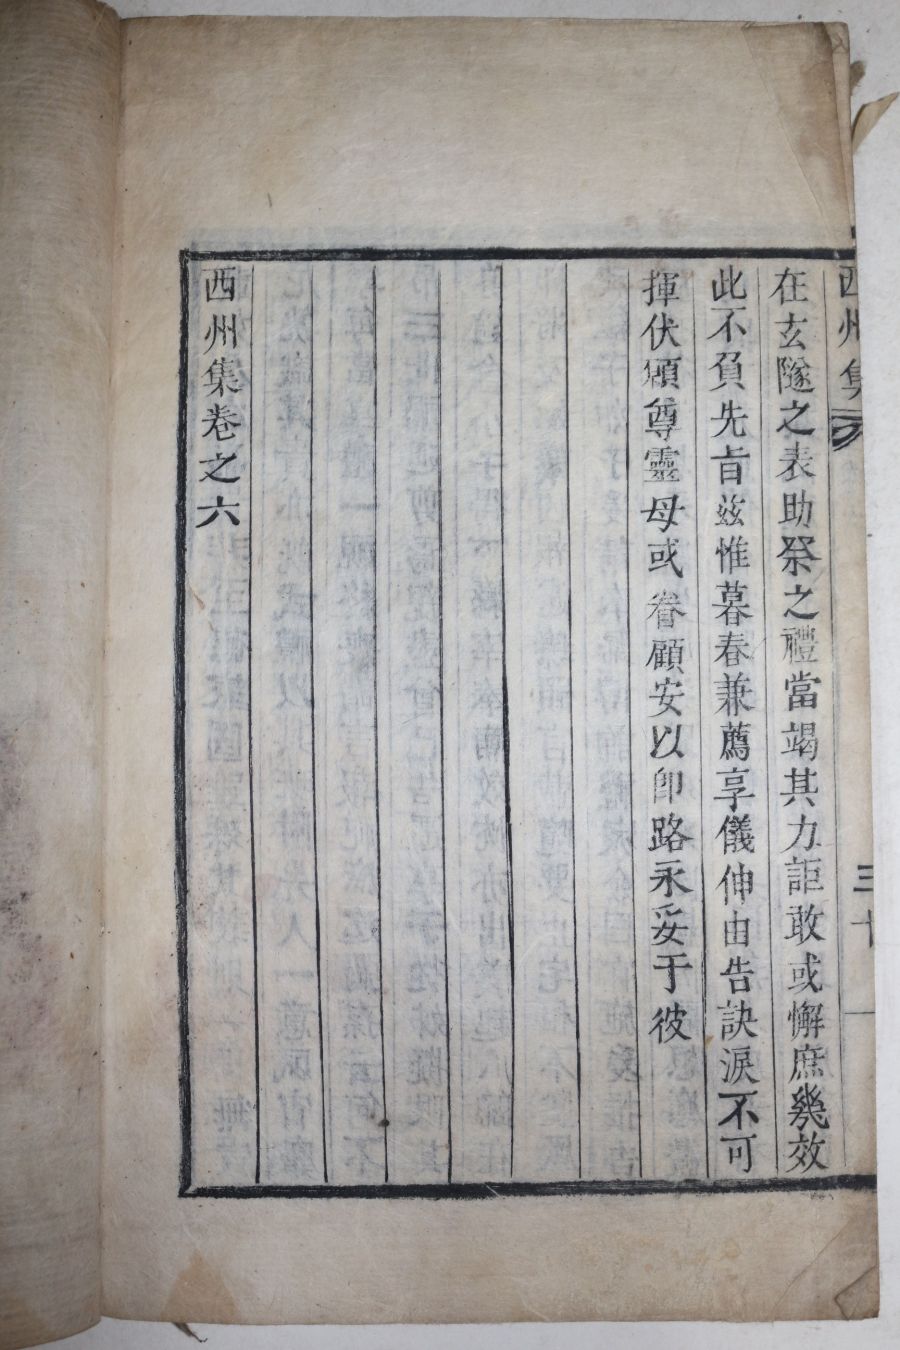 西州集
三十
在玄隧之表助祭之禮當竭其力詎敢或懈庶幾效
此不負先旨茲惟暮春兼薦享儀伸由告訣淚不可
揮伏願尊靈母或眷顧安以卽路永妥于彼
西州集卷之六